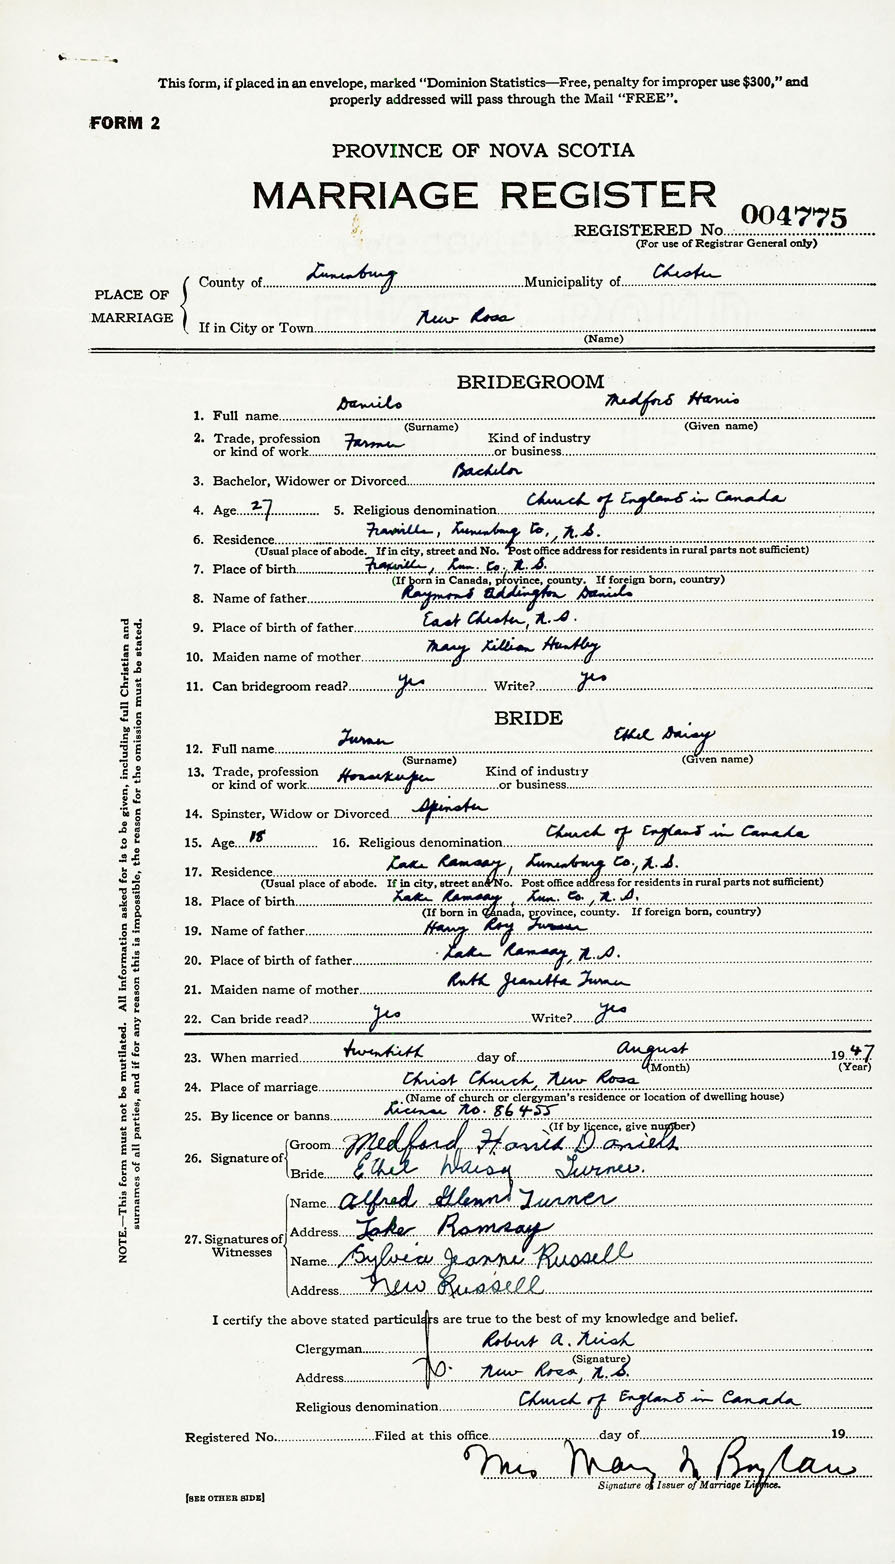 This form, if placed in an envelope, marked "Dominion Statistics—Free, penalty for improper use $300," and
properly addressed will pass through the Mail "FREE".
FORM 2
PROVINCE OF NOVA SCOTIA
MARRIAGE REGISTER
REGISTERED No. 004775
(For use of Registrar General only)
PLACE OF MARRIAGE
County of Lunenburg Municipality of Chester
If in City or Town New Ross
(Name)
BRIDEGROOM
1. Full name Daniels Medford Harris
(Surname) (Given name)
2. Trade, profession or kind of work Farmer Kind of industry or business
3. Bachelor, Widower or Divorced Bachelor
4. Age 27 5. Religious denomination Church of England in Canada
6. Residence Fraxville, Lunenburg Co., N.S.
(Usual place of abode. If in city, street and No. Post office address for residents in rural parts not sufficient)
7. Place of birth Fraxville, Lun. Co., N.S.
(If born in Canada, province, county. If foreign born, country)
8. Name of father Raymond Eddington Daniels
9. Place of birth of father East Chester, N.S.
10. Maiden name of mother Mary Lillian Huntley
11. Can bridegroom read? yes Write? yes
BRIDE
12. Full name Turner Ethel Daisy
(Surname) (Given name)
13. Trade, profession or kind of work Housekeeper Kind of industry or business
14. Spinster, Widow or Divorced Spinster
15. Age 18 16. Religious denomination Church of England in Canada
17. Residence Lake Ramsay, Lunenburg Co., N.S.
(Usual place of abode. If in city, street and No. Post office address for residents in rural parts not sufficient)
18. Place of birth Lake Ramsay, Lun. Co., N.S.
(If born in Canada, province, county. If foreign born, country)
19. Name of father Harry Roy Turner
20. Place of birth of father Lake Ramsay, N.S.
21. Maiden name of mother Ruth Jeanetta Turner
22. Can bride read? yes Write? yes
23. When married twentieth day of August 1947
(Month) (Year)
24. Place of marriage Christ Church, New Ross
(Name of church or clergyman's residence or location of dwelling house)
25. By licence or banns License No. 86455
(If by licence, give number)
26. Signature of
Groom Medford Harris Daniels
Bride Ethel Daisy Turner.
27. Signatures of Witnesses
Name Alfred Glenn Turner
Address Lake Ramsay
Name Sylvia Jeanne Russell
Address New Russell
I certify the above stated particulars are true to the best of my knowledge and belief.
Clergyman Robert A. Neish
(Signature)
Address New Ross, N.S.
Religious denomination Church of England in Canada
Registered No. Filed at this office day of 19
Mrs Mary M Boylan
Signature of Issuer of Marriage Licence.
[SEE OTHER SIDE]
NOTE.—This form must not be mutilated. All information asked for is to be given, including full Christian and
surnames of all parties, and if for any reason this is impossible, the reason for the omission must be stated.